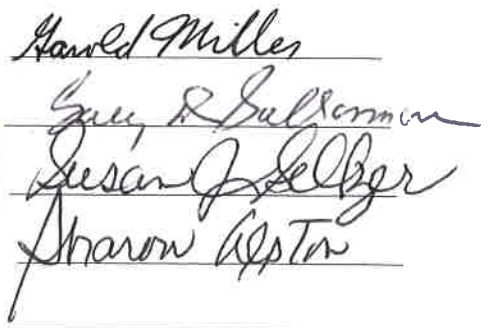 Harold Miller
Gary D
Susan J Selzer
Sharon Alston